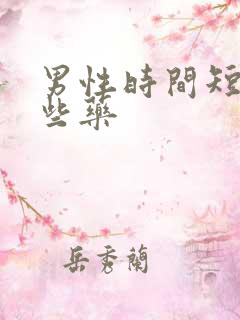 男性時間短
些藥
岳秀蘭